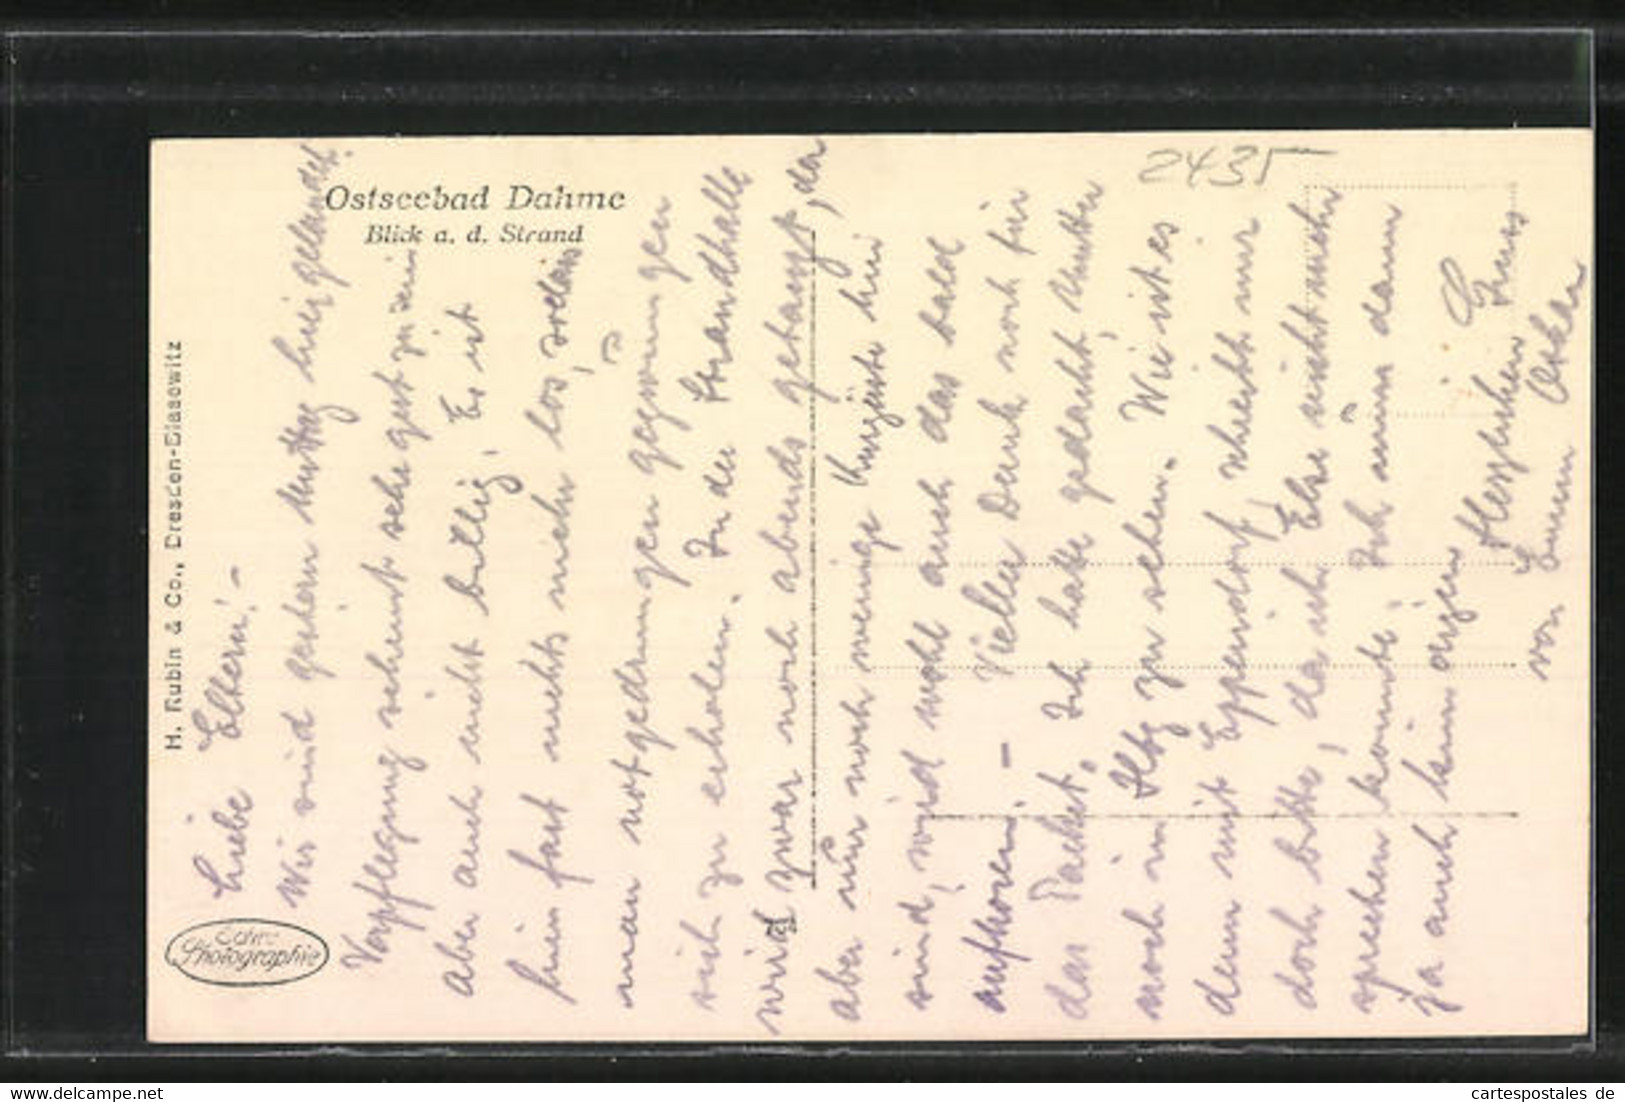 2435
Ostseebad Dahme
Blick a. d. Strand
H. Rubin & Co., Dresden-Blasewitz
Echte
Photographie
Liebe Eltern! –
Wir sind gestern Mittag hier gelandet.
Verpflegung scheint sehr gut zu sein
aber auch nicht billig. Es ist
hier fast nichts mehr los, sodass
man notgedrungen gezwungen
sich zu erholen. In der Strandhalle
wird zwar noch abends getanzt, da
aber nur noch wenige Kurgäste hier
sind, wird wohl auch das bald
aufhören. – Vielen Dank noch für
das Packet. Ich hatte gedacht, Mutter
noch in Hbg zu sehen. Wie ist es
denn mit Eppendorf, schreibt mir
doch bitte, da ich Else nicht mehr
sprechen konnte. Ich
ja auch
Herzlichen Gruss
von Oskar
72
H-1102
cartespostales de